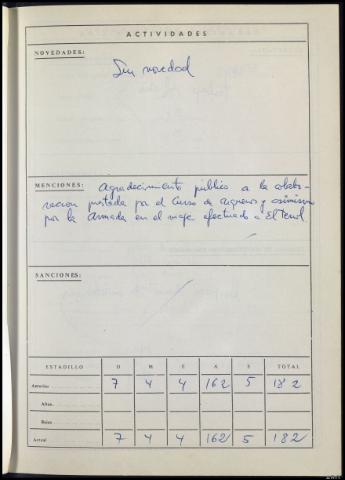 ACTIVIDADES
NOVEDADES:
Sin novedad
MENCIONES: Agradecimiento público a la colabo-
racion prestada por el Curso de y asimismo
por la Armada en el viaje efectuado a El Ferrol.
SANCIONES:
ESTADILLO O M E A S TOTAL
Anterior 7 4 4 162 5 182
Altas
Bajas
Actual 7 4 4 162 5 182